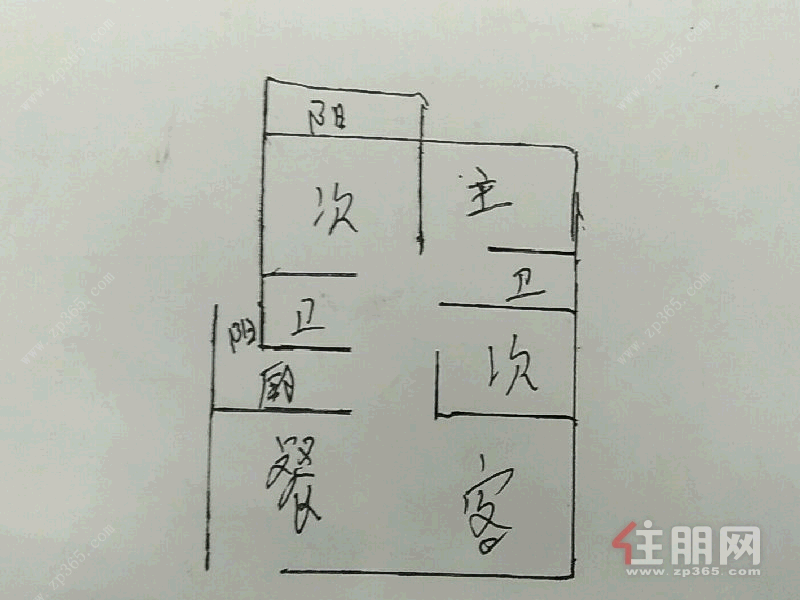 阳
次
主
卫
阳
卫
次
厨
餐
客
住朋网
www.zp365.com